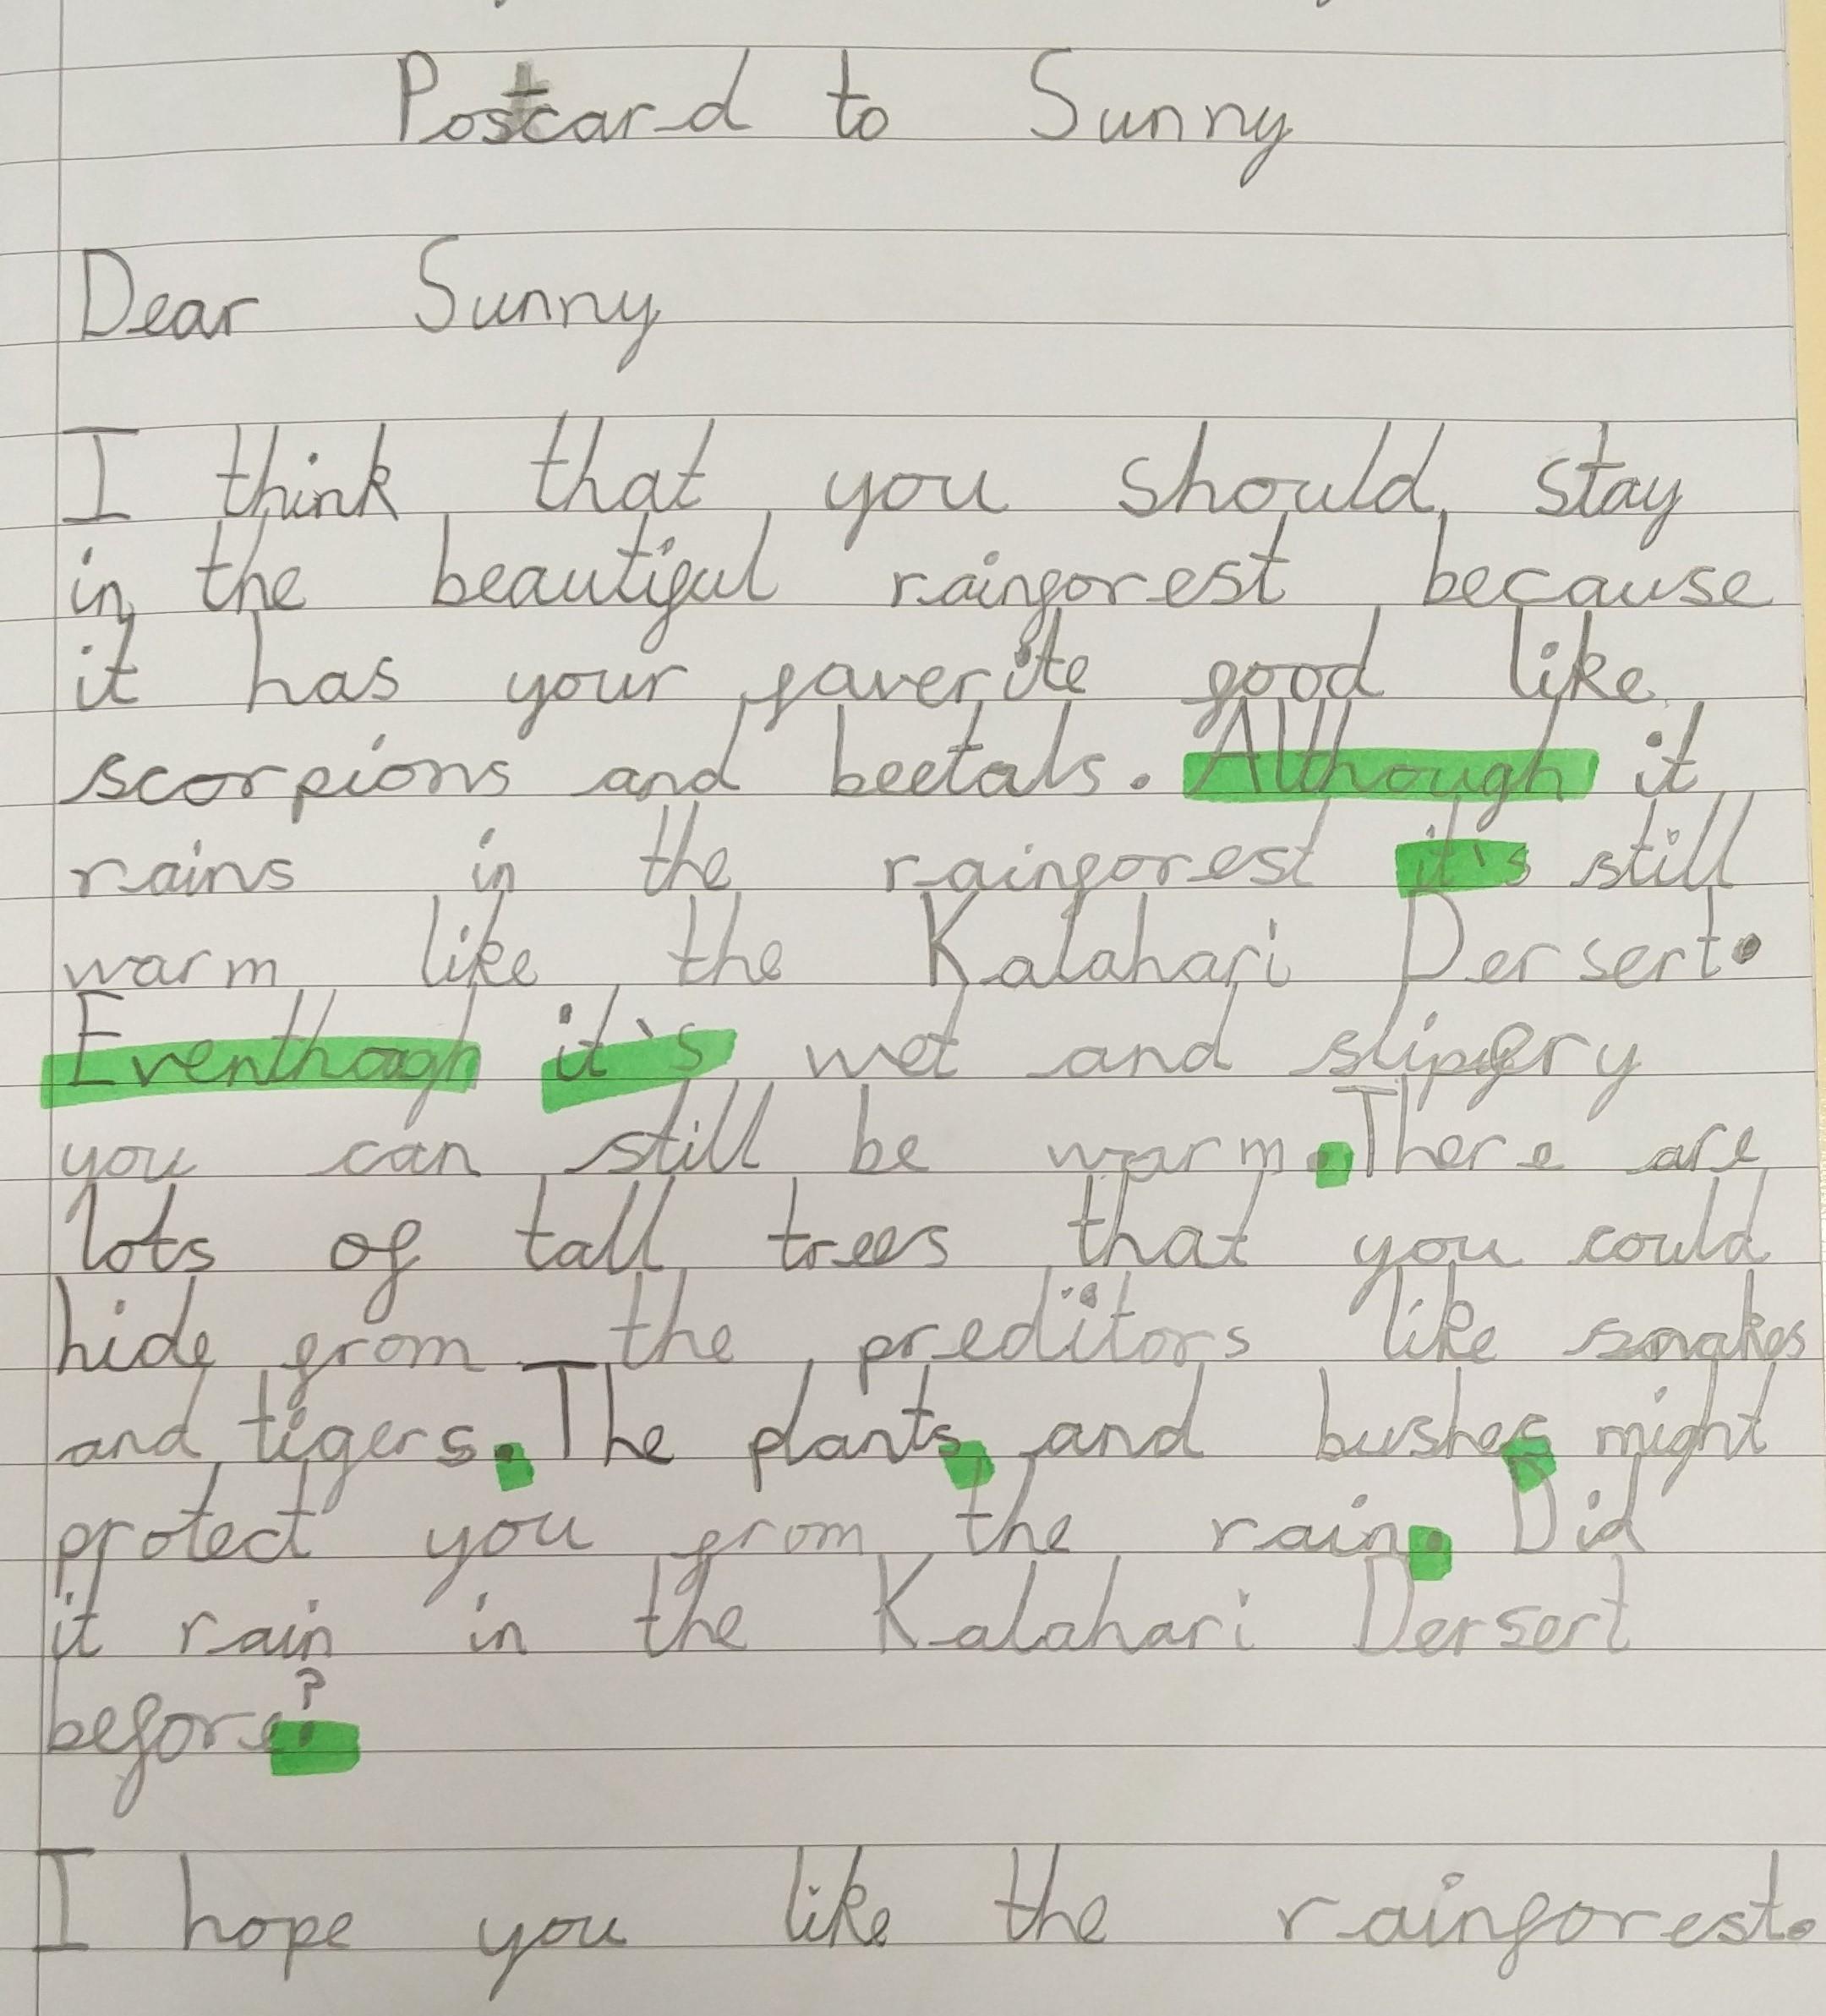 Postcard to Sunny
Dear Sunny
I think that you should stay
in the beautiful rainforest because
it has your faverite food like
scorpions and beetals. Although it
rains in the rainforest it's still
warm like the Kalahari Dersert.
Eventhoagh it's wet and slippery
you can still be warm. There are
lots of tall trees that you could
hide from the preditors like snakes
and tigers. The plants and bushes might
protect you from the rain. Did
it rain in the Kalahari Dersert
before?
I hope you like the rainforest.